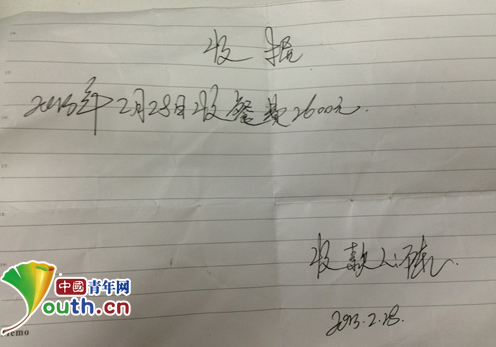 收据
2013年2月28日收餐费2600元.
收款人:
2013.2.28.
中國青年网
Youth.cn
emo